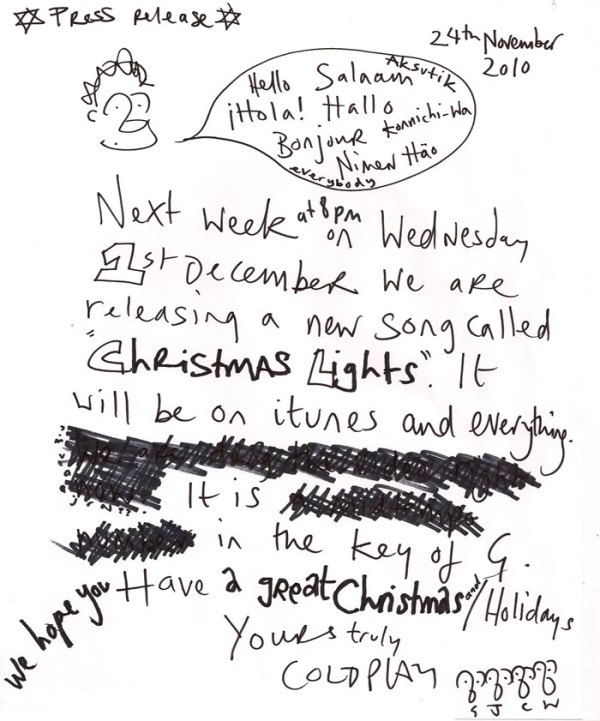 Press Release
24th November
2010
Hello Salaam Aksutik
¡Hola! Hallo
Bonjour Konnichi-Wa
Nimen Hǎo
everybody
Next week at 8pm on Wednesday
1st December We are
releasing a new song called
"Christmas Lights". It
will be on itunes and everything.
We are doing the video right
now. It is a midtempo
number in the key of G.
We hope you Have a great Christmas and/Holidays
Yours truly
COLDPLAY
G J C W